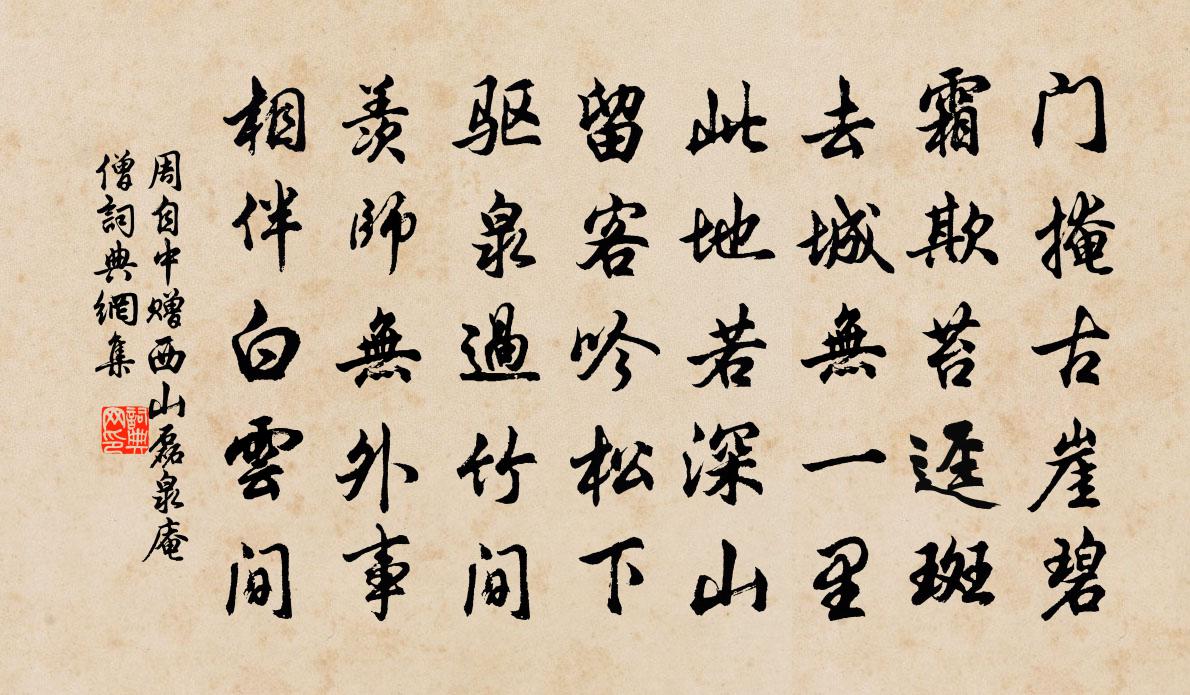 门掩古崖碧
霜欺苔逕斑
去城無一里
此地若深山
留客吟松下
驱泉過竹间
羨師無外事
相伴白雲间
周自中赠西山磊泉庵
僧詞典網集
詞典网印